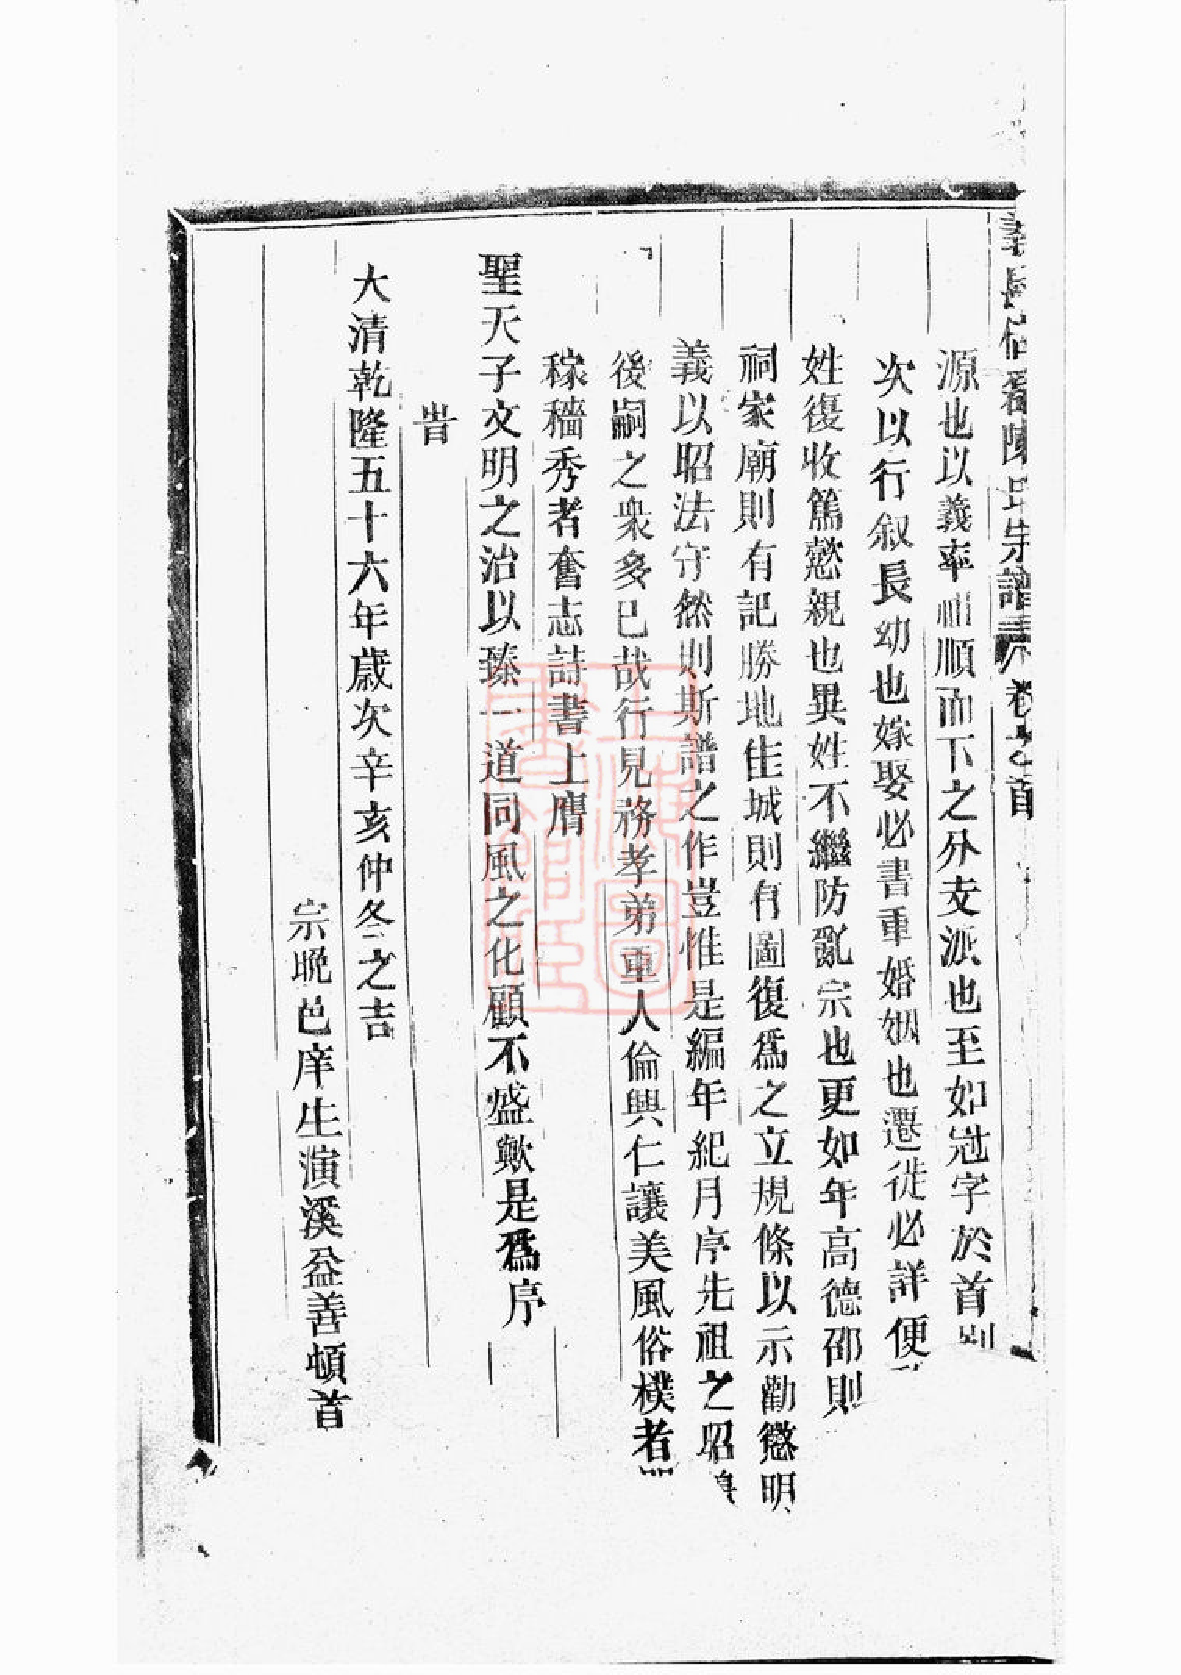 陳氏宗譜 卷之首
源也以義率祖順而下之分支派也至如冠字於首別
次以行叙長幼也嫁娶必書重婚姻也遷徙必詳便
姓復收篤懿親也異姓不繼防亂宗也更如年高德邵則
祠家廟則有記勝地佳城則有圖復爲之立規條以示勸懲明
義以昭法守然則斯譜之作豈惟是編年紀月序先祖之昭穆
後嗣之衆多已哉行見務孝弟重人倫興仁讓美風俗樸者
稼穡秀者奮志詩書上膺
聖天子文明之治以臻一道同風之化顧不盛歟是爲序
旹
大清乾隆五十六年歲次辛亥仲冬之吉
宗晚邑庠生演溪益善頓首
上海圖書館藏